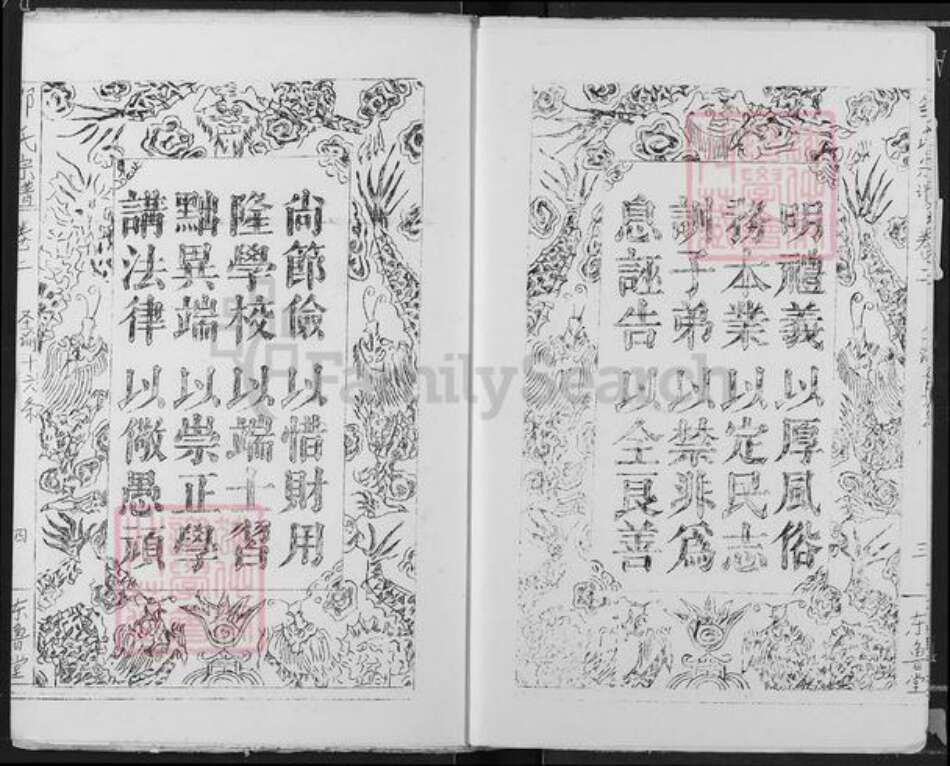 明禮義以厚風俗
務本業以定民志
訓子弟以禁非為
息誣告以全良善
三
东鲁堂
尚節儉以惜財用
隆學校以端士習
黜異端以崇正學
講法律以儆愚頑
氏宗譜 卷二
圣諭十六条
四
东鲁堂
FamilySearch